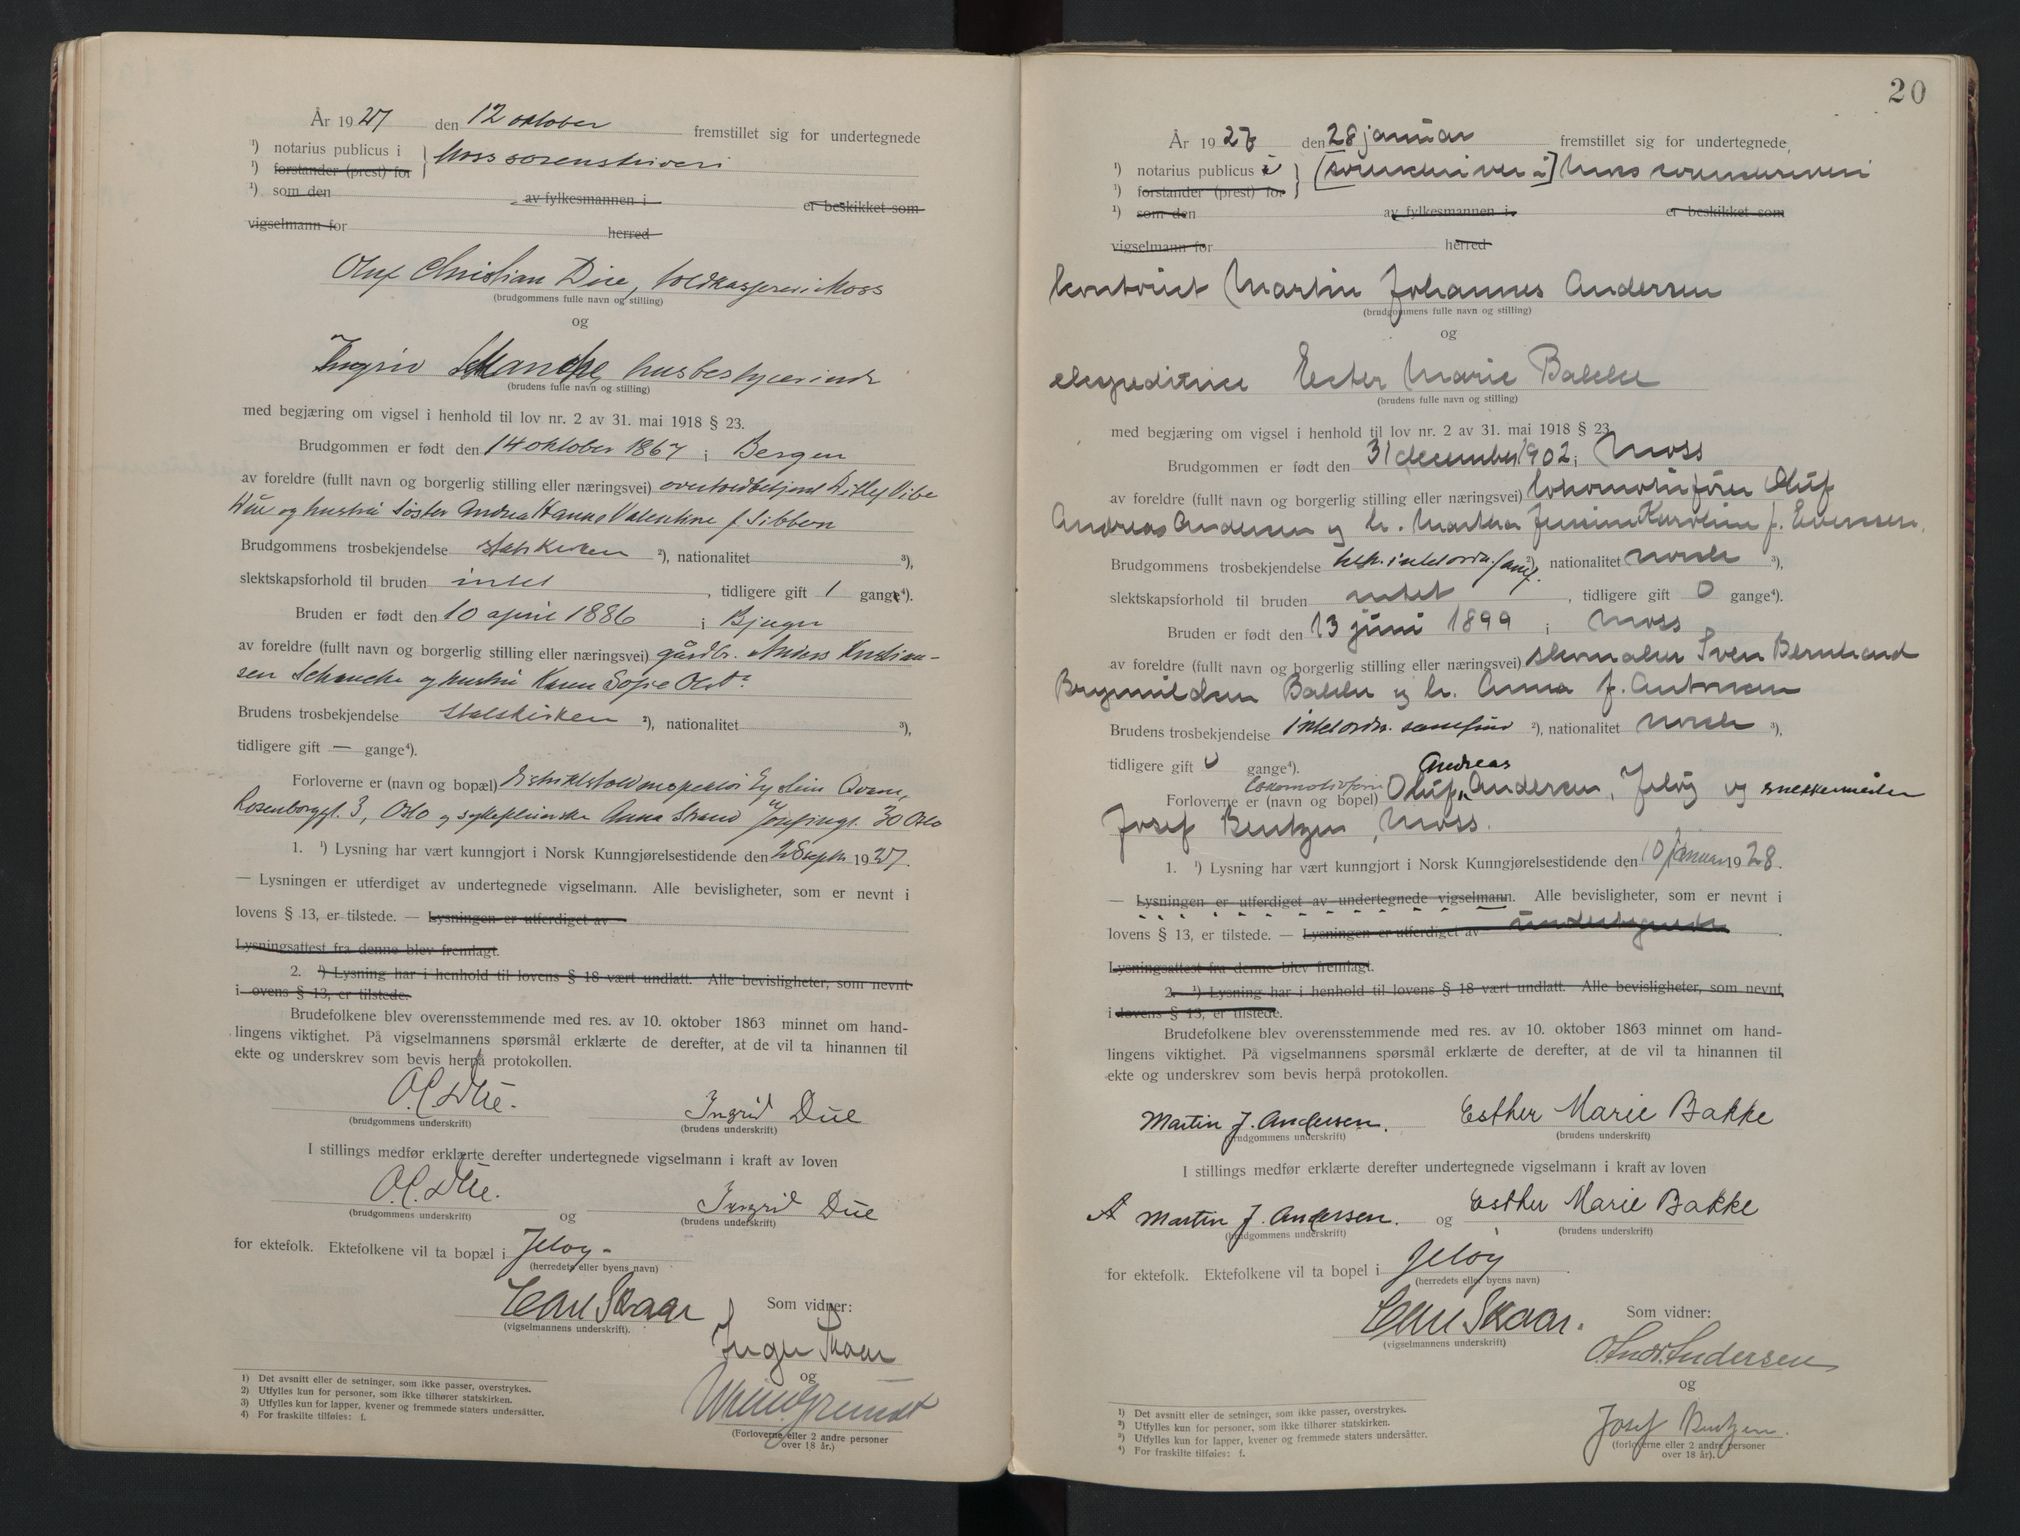 År 1927 den 12 oktober fremstillet sig for undertegnede
¹) notarius publicus i } Moss sorenskriveri
¹) forstander (prest) for
¹) som den av fylkesmannen i er beskikket som
vigselmann for herred
Oluf Christian Due, toldkasserer i Moss
(brudgommens fulle navn og stilling)
og
Ingrid Schancke, husbestyrerinde
(brudens fulle navn og stilling)
med begjæring om vigsel i henhold til lov nr. 2 av 31. mai 1918 § 23.
Brudgommen er født den 14 oktober 1867 i Bergen
av foreldre (fullt navn og borgerlig stilling eller næringsvei) overtoldbetjent Ditlef Vibe
Due og hustru Søster Andrea Hanna Valentine f. Sibbern
Brudgommens trosbekjendelse statskirken ²), nationalitet ³),
slektskapsforhold til bruden intet, tidligere gift 1 gange⁴).
Bruden er født den 10 april 1886 i Bjugn
av foreldre (fullt navn og borgerlig stilling eller næringsvei) gårdbr. Anders Kristian-
sen Schancke og hustru Karen Sofie
Brudens trosbekjendelse Statskirken ²), nationalitet ³),
tidligere gift — gange⁴).
Forloverne er (navn og bopæl) Eystein
Rosenborggt. 3, Oslo og sykepleierske Anna Strand 30 Oslo
1. ¹) Lysning har vært kunngjort i Norsk Kunngjørelsestidende den 28 septr. 1927.
— Lysningen er utferdiget av undertegnede vigselmann. Alle bevisligheter, som er nevnt i
lovens § 13, er tilstede. — Lysningen er utferdiget av
Lysningsattest fra denne blev fremlagt.
2. ¹) Lysning har i henhold til lovens § 18 vært undlatt. Alle bevisligheter, som nevnt
i lovens § 13, er tilstede.
Brudefolkene blev overensstemmende med res. av 10. oktober 1863 minnet om hand-
lingens viktighet. På vigselmannens spørsmål erklærte de derefter, at de vil ta hinannen til
ekte og underskrev som bevis herpå protokollen.
O.C. Due. Ingrid Due
(brudgommens underskrift) (brudens underskrift)
I stillings medfør erklærte derefter undertegnede vigselmann i kraft av loven
O.C. Due. Ingrid Due
(brudgommens underskrift) og (brudens underskrift)
for ektefolk. Ektefolkene vil ta bopæl i Jeløy.
(herredets eller byens navn)
Carl Skaar Som vidner:
(vigselmannens underskrift).
Inger Skaar
og
(Forloverne eller 2 andre personer
over 18 år.)
1) Det avsnitt eller de setninger, som ikke passer, overstrykes.
2) Utfylles kun for personer, som ikke tilhører statskirken.
3) Utfylles kun for lapper, kvener og fremmede staters undersåtter.
4) For fraskilte tilføies: f.
20
År 1928 den 28 januar fremstillet sig for undertegnede,
¹) notarius publicus i } [sorenskriver i] Moss sorenskriveri
¹) forstander (prest) for
¹) som den av fylkesmannen i er beskikket som
vigselmann for herred
kontorist Martin Johannes Andersen
(brudgommens fulle navn og stilling)
og
ekspeditrice Ester Marie Bakke
(brudens fulle navn og stilling)
med begjæring om vigsel i henhold til lov nr. 2 av 31. mai 1918 § 23.
Brudgommen er født den 31 december 1902 i Moss
av foreldre (fullt navn og borgerlig stilling eller næringsvei) lokomotivfører Oluf
Andreas Andersen og h. Martha Jensine Karoline f. Evensen.
Brudgommens trosbekjendelse ²), nationalitet norsk ³),
slektskapsforhold til bruden intet, tidligere gift 0 gange⁴).
Bruden er født den 13 juni 1899 i Moss
av foreldre (fullt navn og borgerlig stilling eller næringsvei) skomaker Sven Bernhard
Brynildsen Bakke og h. Anna f. Antonsen
Brudens trosbekjendelse intet ordn. samfund ²), nationalitet norsk ³),
tidligere gift 0 gange⁴). Andreas
Forloverne er (navn og bopel) lokomotivfører Oluf Andersen, Jeløy og snekkermester
Josef Bentzen, Moss.
1. ¹) Lysning har vært kunngjort i Norsk Kunngjørelsestidende den 10 januar 1928.
— Lysningen er utferdiget av undertegnede vigselmann. Alle bevisligheter, som er nevnt i
lovens § 13, er tilstede. — Lysningen er utferdiget av undertegnede
Lysningsattest fra denne blev fremlagt.
2. ¹) Lysning har i henhold til lovens § 18 vært undlatt. Alle bevisligheter, som nevnt
i lovens § 13, er tilstede.
Brudefolkene blev overensstemmende med res. av 10. oktober 1863 minnet om hand-
lingens viktighet. På vigselmannens spørsmål erklærte de derefter, at de vil ta hinannen til
ekte og underskrev som bevis herpå protokollen.
Martin J. Andersen. Esther Marie Bakke
(brudgommens underskrift) (brudens underskrift)
I stillings medfør erklærte derefter undertegnede vigselmann i kraft av loven
A Martin J. Andersen. og Esther Marie Bakke
(brudgommens underskrift) (brudens underskrift)
for ektefolk. Ektefolkene vil ta bopel i Jeløy
(herredets eller byens navn)
Carl Skaar. Som vidner:
(vigselmannens underskrift)
O. Andr. Andersen
og
Josef Bentzen.
(forloverne eller 2 andre personer
over 18 år).
¹) Det avsnitt eller de setninger, som ikke passer, overstrykes.
²) Utfylles kun for personer, som ikke tilhører statskirken.
³) Utfylles kun for lapper, kvener og fremmede staters undersåtter.
⁴) For fraskilte tilføies: f.